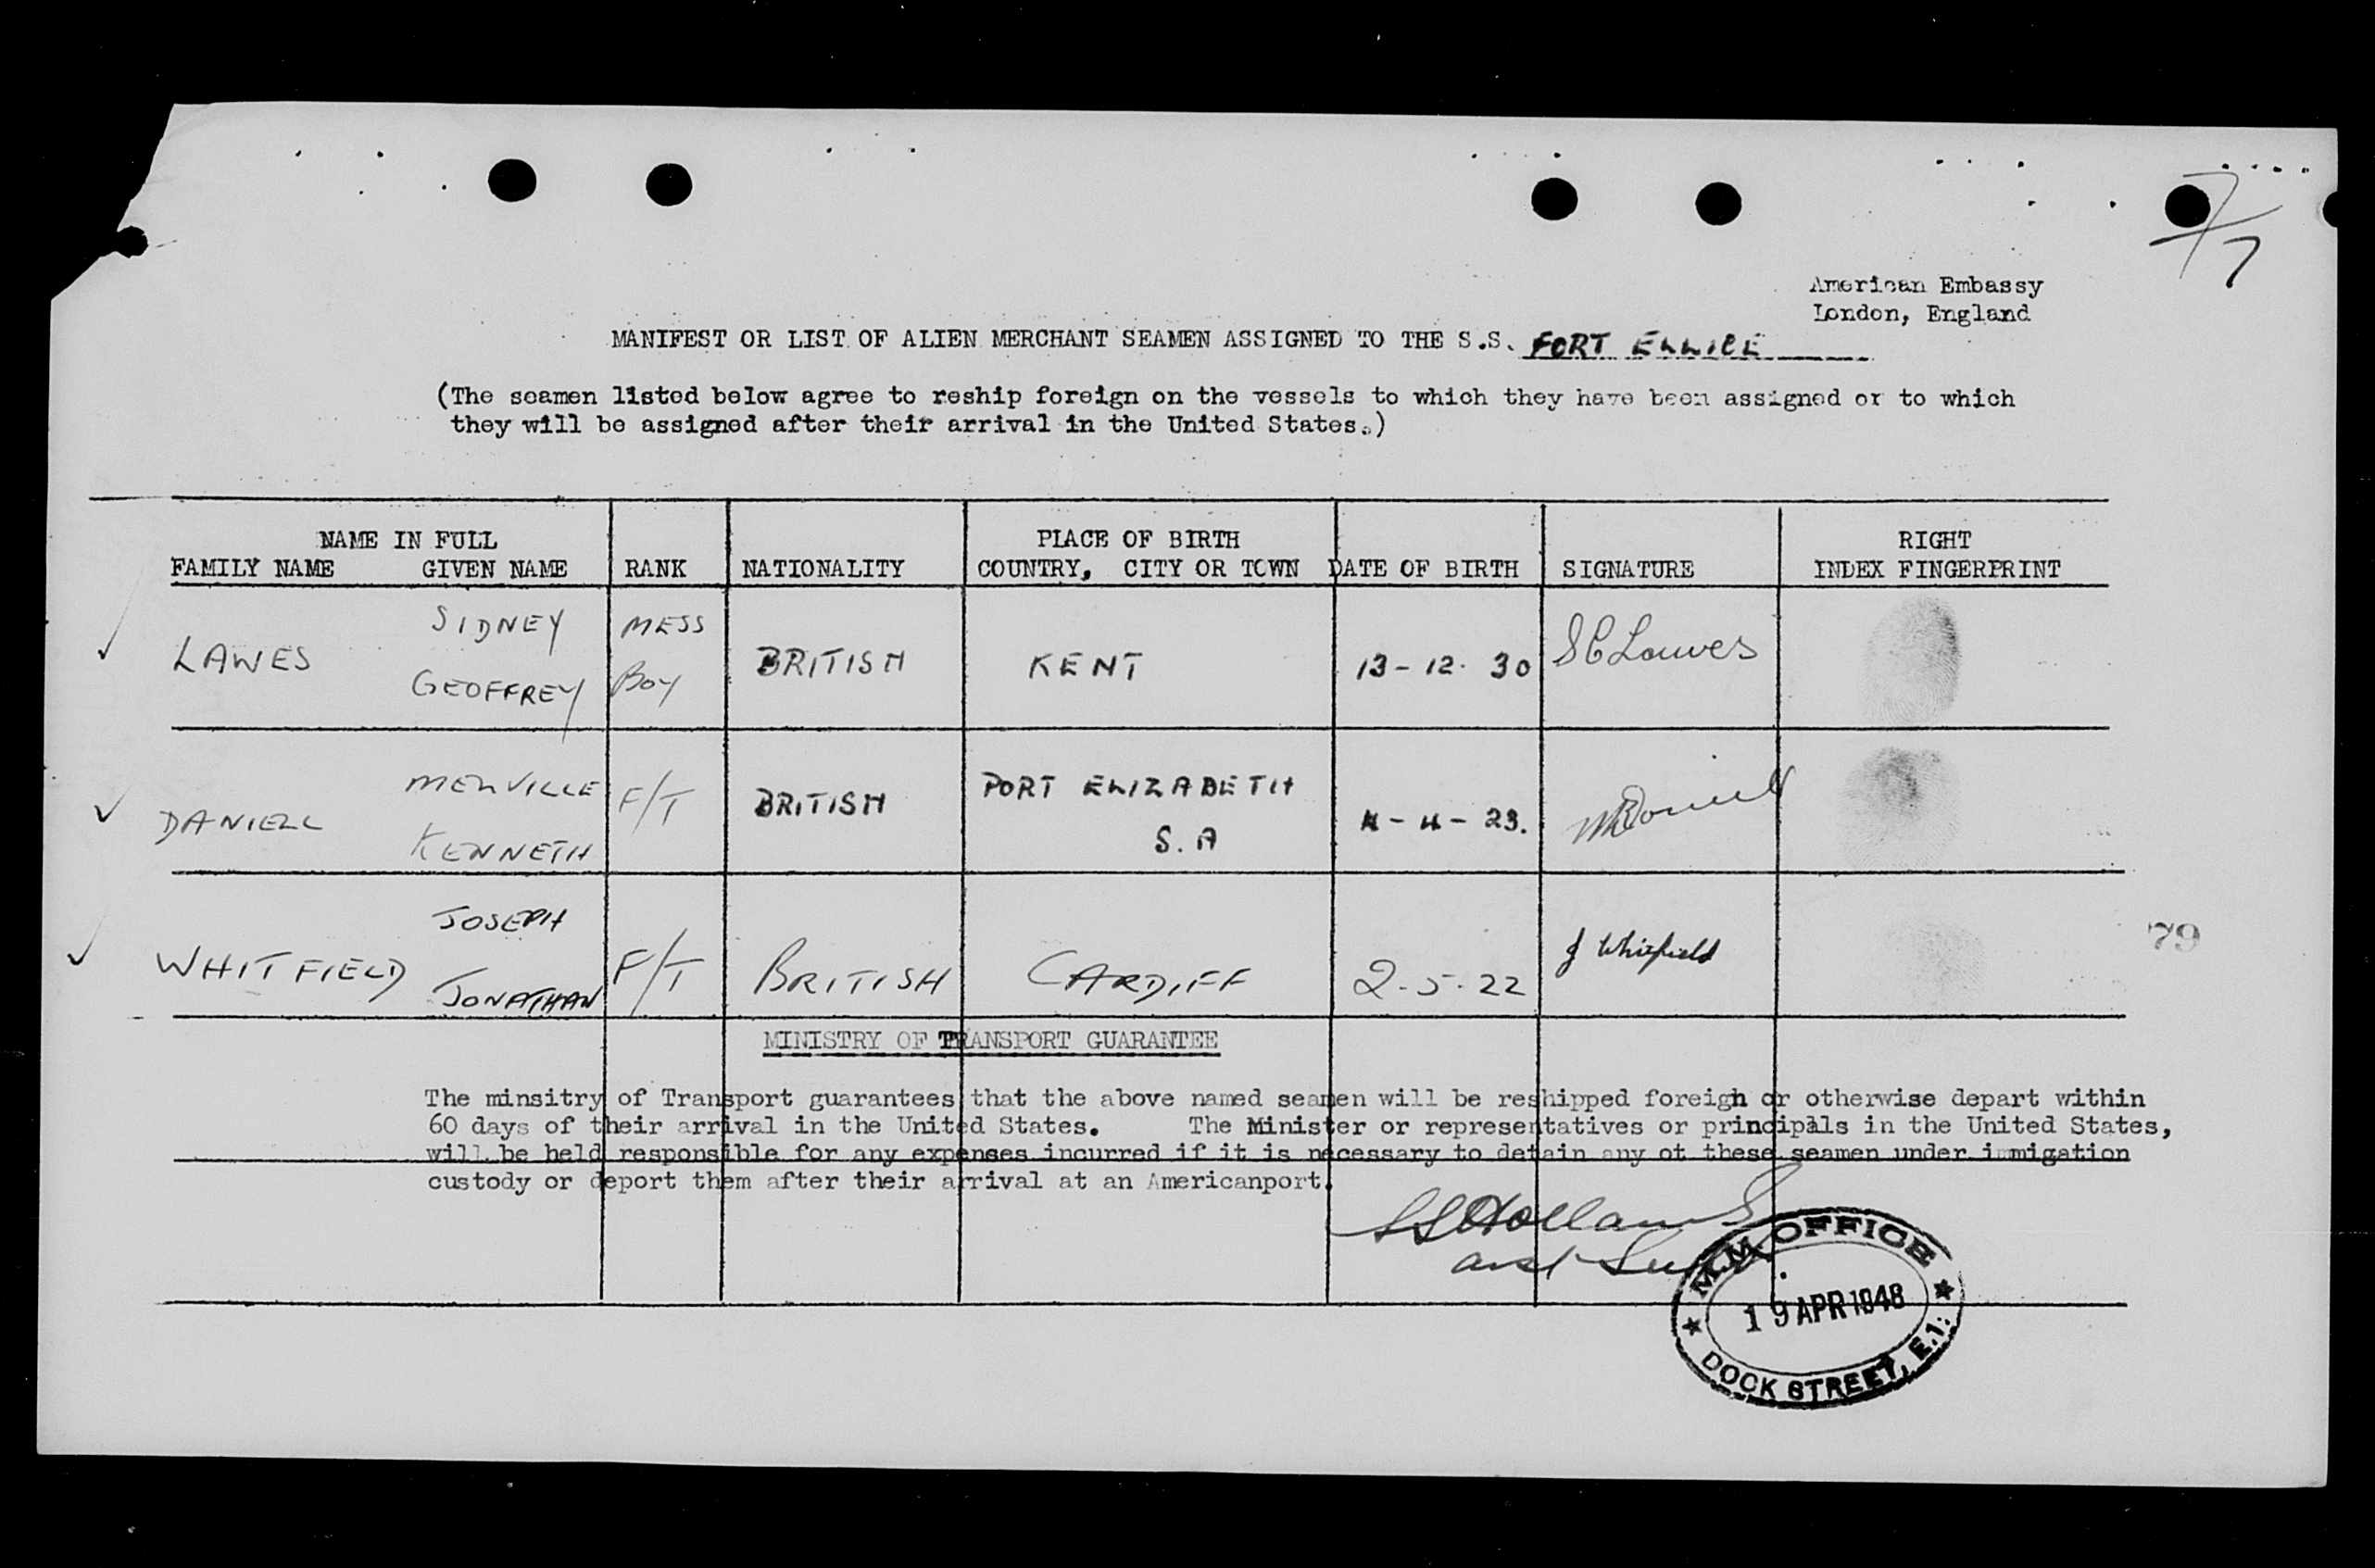 7/7
American Embassy
London, England
MANIFEST OR LIST OF ALIEN MERCHANT SEAMEN ASSIGNED TO THE S.S. FORT ELLICE
(The seamen listed below agree to reship foreign on the vessels to which they have been assigned or to which
they will be assigned after their arrival in the United States.)
NAME IN FULL PLACE OF BIRTH RIGHT
FAMILY NAME GIVEN NAME RANK NATIONALITY COUNTRY, CITY OR TOWN DATE OF BIRTH SIGNATURE INDEX FINGERPRINT
SIDNEY MESS
LAWES BRITISH KENT 13-12.30 S G Lawes
GEOFFREY BOY
MELVILLE F/T PORT ELIZABETH
DANIELL BRITISH 4-4-23. MKDaniell
KENNETH S.A
JOSEPH
WHITFIELD F/T BRITISH CARDIFF 2.5.22 J Whitfield
JONATHAN
79
MINISTRY OF TRANSPORT GUARANTEE
The minsitry of Transport guarantees that the above named seamen will be reshipped foreign or otherwise depart within
60 days of their arrival in the United States. The Minister or representatives or principals in the United States,
will be held responsible for any expenses incurred if it is necessary to detain any of these seamen under immigation
custody or deport them after their arrival at an Americanport.
Holland
M.M. OFFICE
19 APR 1948
DOCK STREET, E.1.